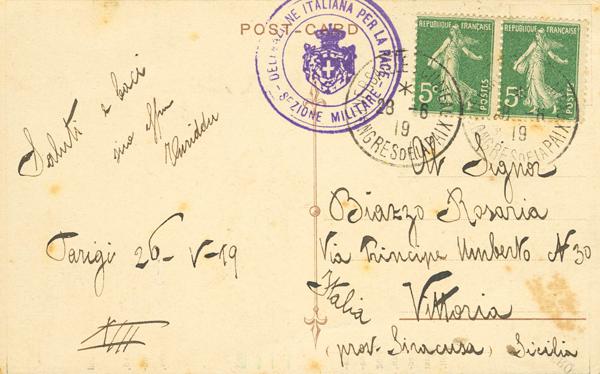 POST-CARD
DELEGAZIONE ITALIANA PER LA PACE
- SEZIONE MILITARE -
REPUBLIQUE FRANÇAISE
5c
POSTES
REPUBLIQUE FRANÇAISE
5c
POSTES
28 - 6
19
CONGRES DE LA PAIX
19
CONGRES DE LA PAIX
Saluti e baci
Parigi 26 - V - 19
XIII
Al Signor
Biazzo Rosaria
Via Principe Umberto N 30
Italia Vittoria
(prov. Siracusa) Sicilia